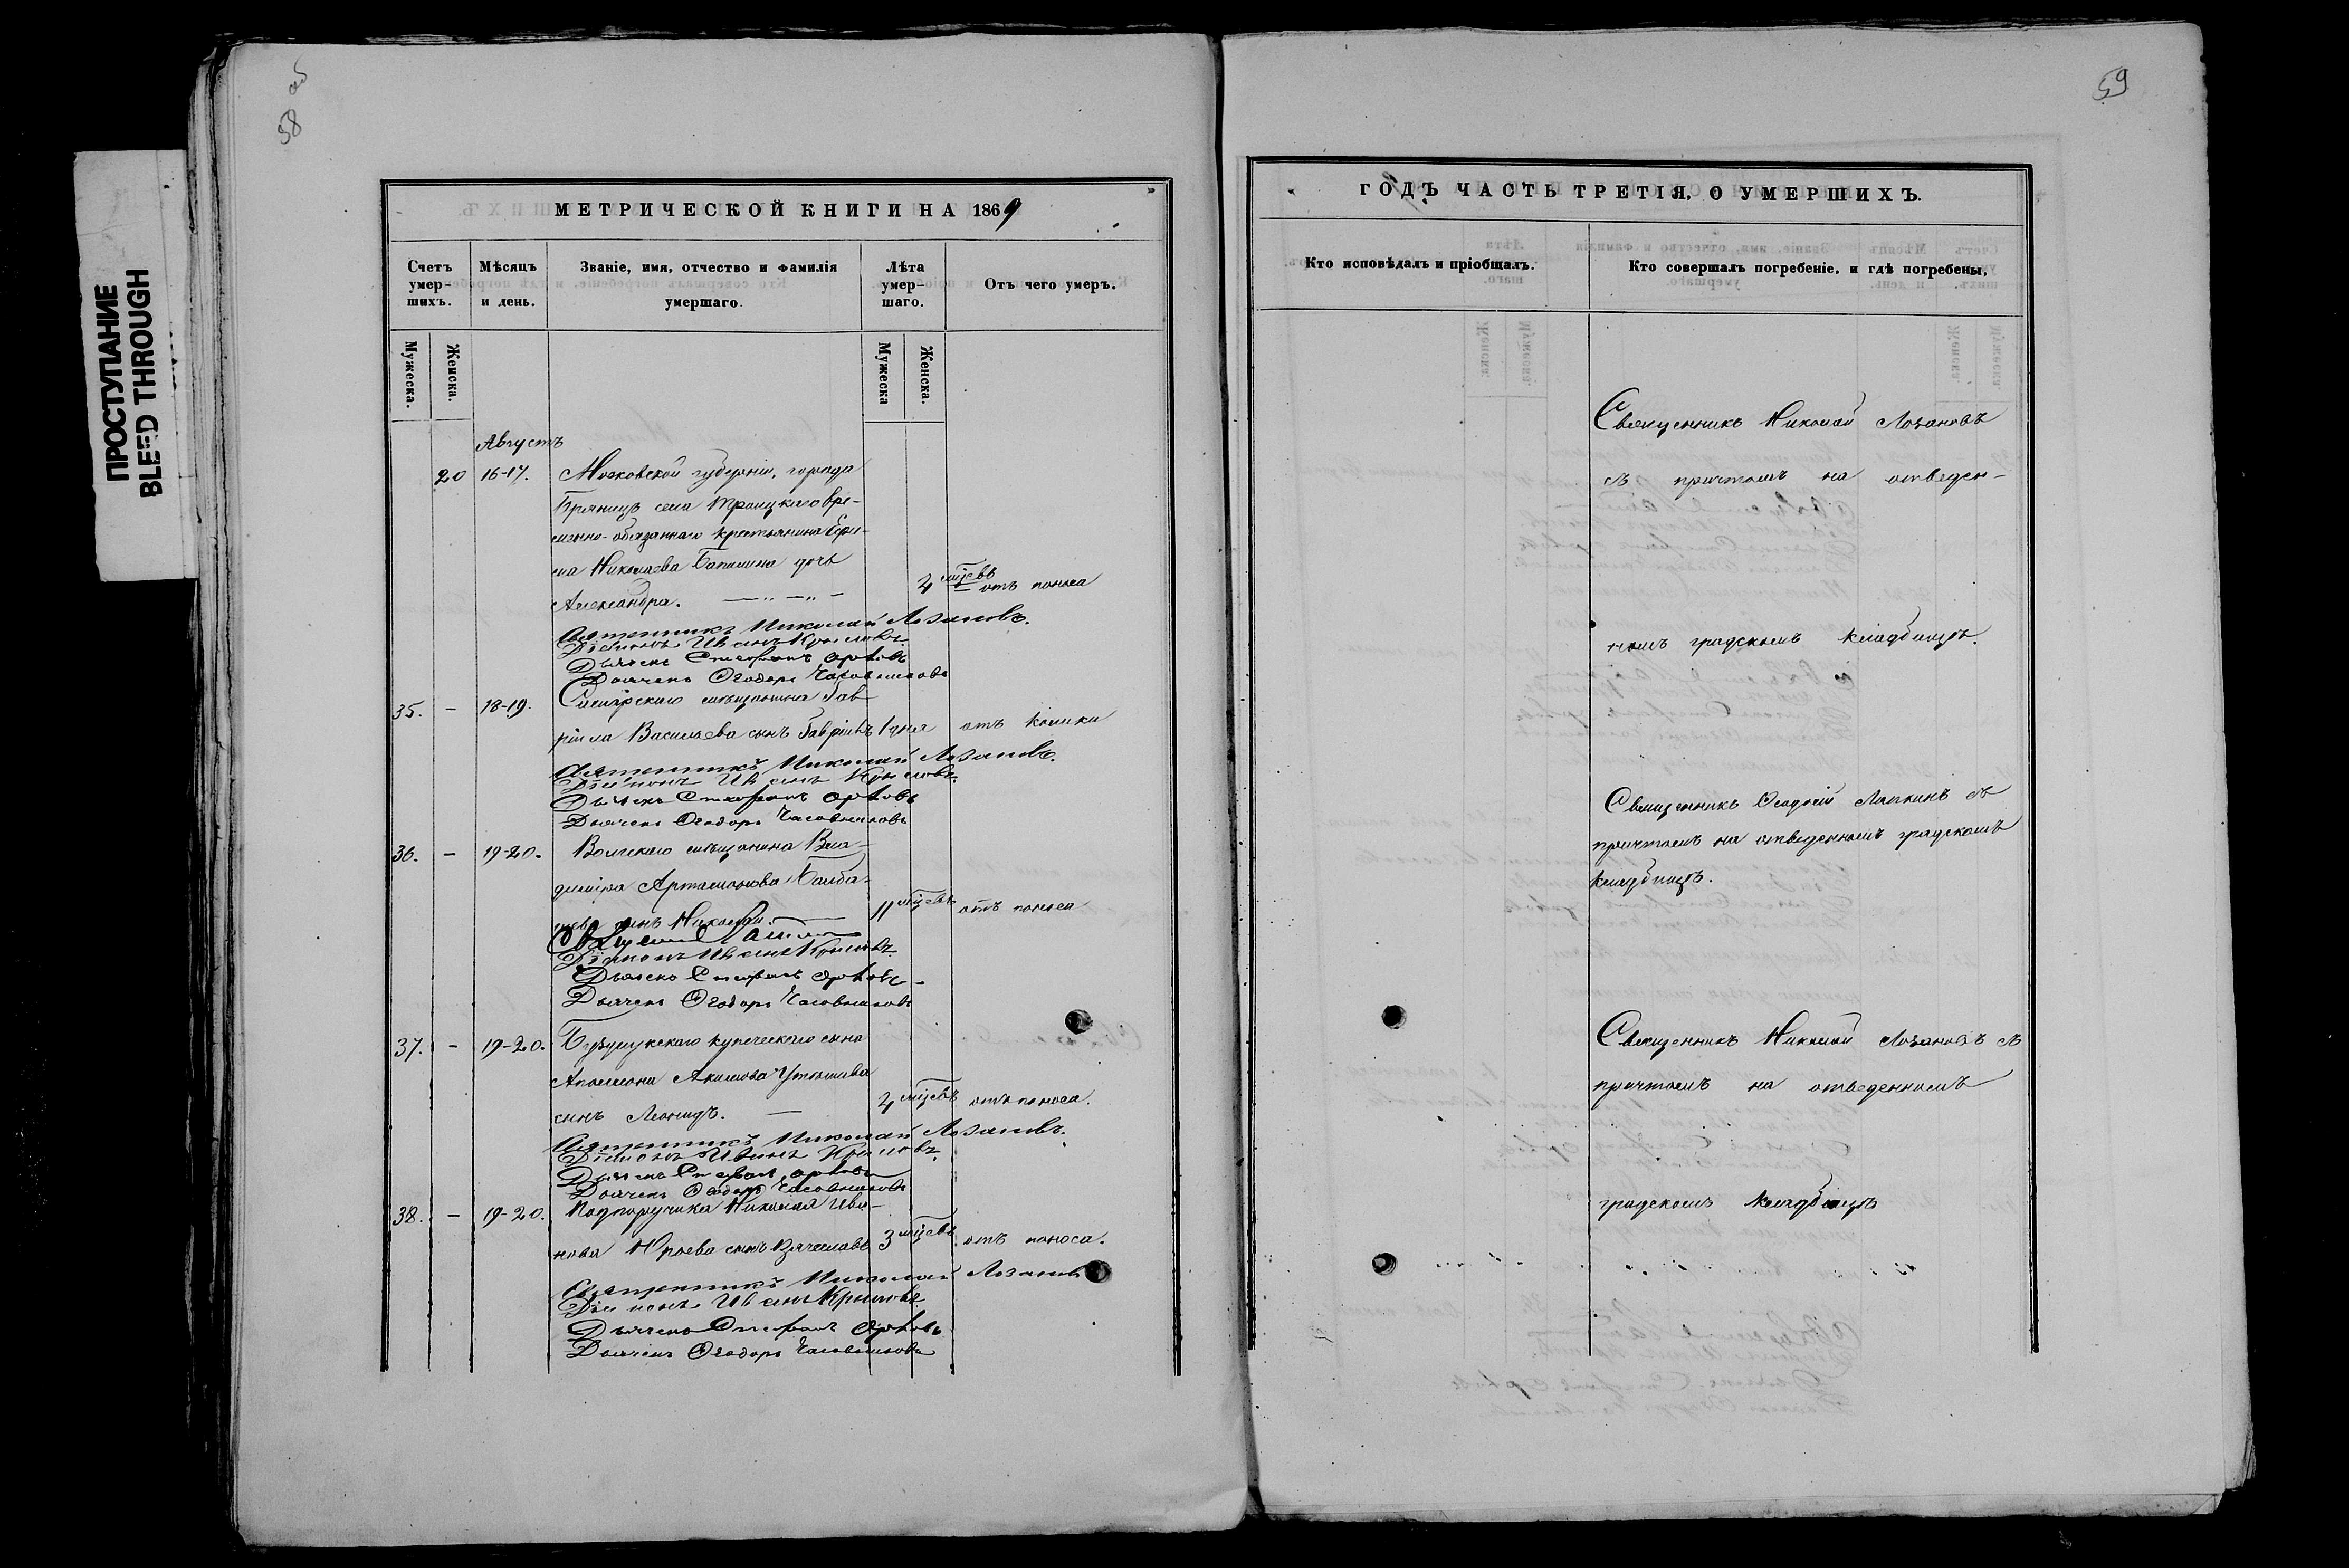 58 об
59
ПРОСТУПАНИЕ
BLEED THROUGH
МЕТРИЧЕСКОЙ КНИГИ НА 1869
Счетъ умер-шихъ.
Мѣсяцъ и день.
Званіе, имя, отчество и фамилія умершаго.
Лѣта умер-шаго.
Отъ чего умеръ.
Мужеска.
Женска.
Мужеска
Женска.
Августъ
20 16-17. Московской губерніи, города
села Троицкаго вре-
менно-обязаннаго крестьянина Ефи-
ма Николаева дочь
Александра. 4 мцевъ отъ поноса
Священникъ Николай Лозановъ.
Діаконъ Иванъ Крыловъ
Дьячекъ Стефанъ Орловъ
Дьячекъ Ѳеодоръ Часовниковъ
35. - 18-19. Самарскаго мѣщанина Гав-
ріила Васильева сынъ Гавріилъ 1 дня отъ колики
Священникъ Николай Лозановъ.
Діаконъ Иванъ Крыловъ.
Дьячекъ Стефанъ Орловъ
Дьячекъ Ѳеодоръ Часовниковъ
36. - 19-20. Вольскаго мѣщанина Вла-
диміра Артамонова
сынъ Николай. 11 мцевъ отъ поноса
Діаконъ Иванъ Крыловъ
Дьячекъ Стефанъ Орловъ
Дьячекъ Ѳеодоръ Часовниковъ
37. - 19-20. Бузулукскаго купеческаго сына
Аполлона Акимова
сынъ Леонидъ. 4 мцевъ отъ поноса.
Священникъ Николай Лозановъ.
Діаконъ Иванъ Крыловъ.
Дьячекъ Стефанъ Орловъ
Дьячекъ Ѳеодоръ Часовниковъ
38. - 19-20. Подпоручика Николая Ива-
нова Юрьева сынъ Вячеславъ 3 мцевъ отъ поноса.
Священникъ Николай Лозановъ
Діаконъ Иванъ Крыловъ
Дьячекъ Стефанъ Орловъ
Дьячекъ Ѳеодоръ Часовниковъ
ГОДЪ ЧАСТЬ ТРЕТІЯ, О УМЕРШИХЪ.
Кто исповѣдалъ и пріобщалъ.
Кто совершалъ погребеніе, и гдѣ погребены,
Священникъ Николай Лозановъ
съ причтомъ на отведен-
номъ градскомъ кладбищѣ.
Священникъ съ
причтомъ на отведенномъ градскомъ
кладбищѣ.
Священникъ Николай Лозановъ съ
причтомъ на отведенномъ
градскомъ кладбищѣ